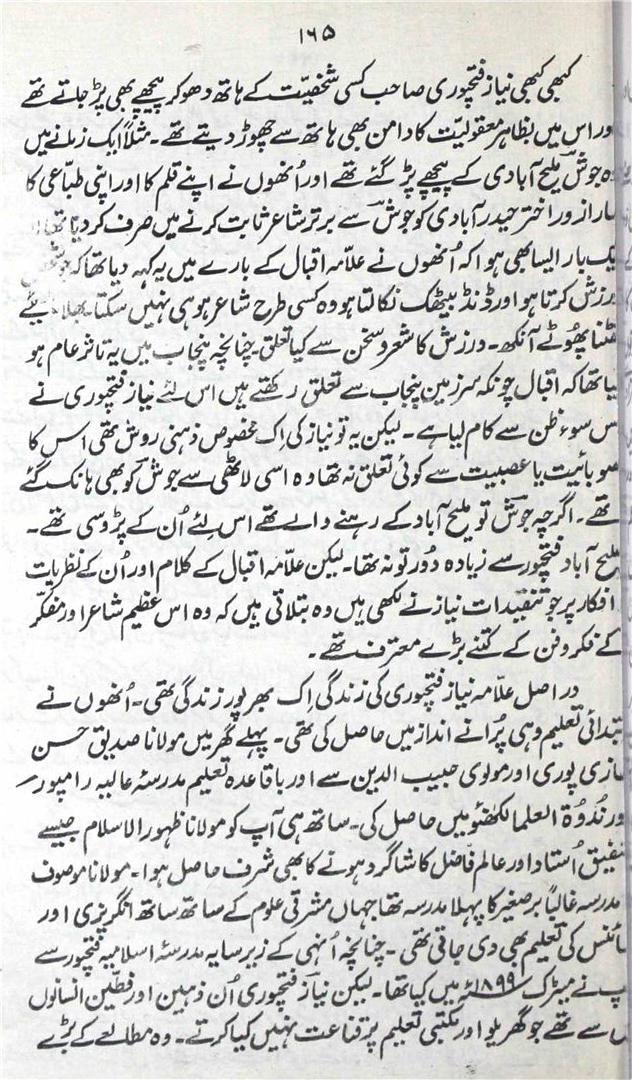 ۱۶۵
کبھی کبھی نیاز فتحپوری صاحب کسی شخصیّت کے ہاتھ دھو کر پیچھے بھی پڑ جاتے تھے
اور اس میں بظاہر معقولیّت کا دامن بھی ہاتھ سے چھوڑ دیتے تھے۔ مثلاً ایک زمانے میں
وہ جوشؔ ملیح آبادی کے پیچھے پڑ گئے تھے اور اُنھوں نے اپنے قلم کا اور اپنی طبّاعی کا
سارا زور اختر حیدر آبادی کو جوشؔ سے برتر شاعر ثابت کرنے میں صرف کر دیا تھا۔
ایک بار ایسا بھی ہوا کہ اُنھوں نے علّامہ اقبال کے بارے میں یہ کہہ دیا تھا کہ جو شخص
ورزش کرتا ہو اور ڈنڈ بیٹھک نکالتا ہو وہ کسی طرح شاعر ہو ہی نہیں سکتا۔ بھلا
گھٹنا پھُوٹے آنکھ۔ ورزش کا شعر و سخن سے کیا تعلق۔ چنانچہ پنجاب میں یہ تاثر عام ہو
گیا تھا کہ اقبال چونکہ سرزمینِ پنجاب سے تعلق رکھتے ہیں اس لئے نیاز فتحپوری نے
اس سوءِ ظن سے کام لیا ہے۔ لیکن یہ تو نیاز کی اِک مخصوص ذہنی روش تھی اس کا
صوبائیت یا عصبیت سے کوئی تعلق نہ تھا وہ اسی لاٹھی سے جوشؔ کو بھی ہانک گئے
تھے۔ اگرچہ جوشؔ تو ملیح آباد کے رہنے والے تھے اس لئے اُن کے پڑوسی تھے۔
ملیح آباد فتحپور سے زیادہ دُور تو نہ تھا۔ لیکن علّامہ اقبال کے کلام اور اُن کے نظریات
و افکار پر جو تنقیدات نیاز نے لکھی ہیں وہ بتلاتی ہیں کہ وہ اس عظیم شاعر اور مفکّر
کے فکر و فن کے کتنے بڑے معترف تھے۔
در اصل علّامہ نیاز فتحپوری کی زندگی اِک بھرپور زندگی تھی۔ اُنھوں نے
ابتدائی تعلیم وہی پُرانے انداز میں حاصل کی تھی۔ پہلے گھر میں مولانا صدیق حسن
غازی پوری اور مولوی حبیب الدین سے اور باقاعدہ تعلیم مدرسۂ عالیہ رامپور
اور نُدوۃ العلما لکھنؤ میں حاصل کی۔ ساتھ ہی آپ کو مولانا ظہور الاسلام جیسے
شفیق اُستاد اور عالم فاضل کا شاگرد ہونے کا بھی شرف حاصل ہوا۔ مولانا موصوف
مدرسہ غالباً برصغیر کا پہلا مدرسہ تھا جہاں مشرقی علوم کے ساتھ ساتھ انگریزی اور
سائنس کی تعلیم بھی دی جاتی تھی۔ چنانچہ اُنہی کے زیرِ سایہ مدرسۂ اسلامیہ فتحپور سے
آپ نے میٹرک ۱۸۹۹ء میں کیا تھا۔ لیکن نیازؔ فتحپوری اُن ذہین اور فطین انسانوں
میں سے تھے جو گھریلو اور مکتبی تعلیم پر قناعت نہیں کیا کرتے۔ وہ مطالعے کے بڑے